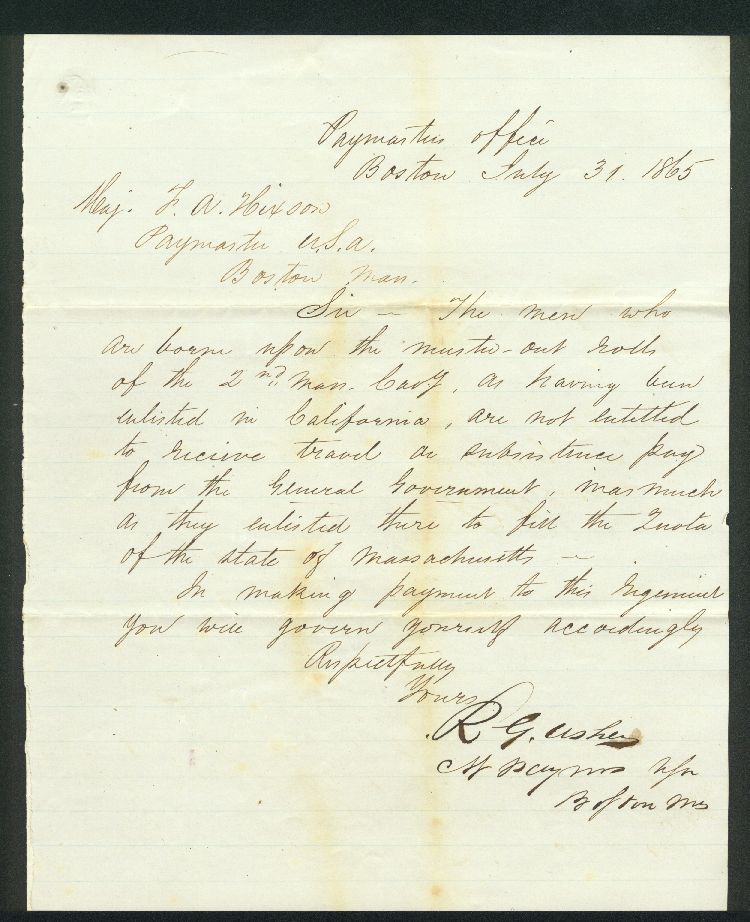 Paymasters office
Boston July 31. 1865
Maj. F. A. Hixson
Paymaster U.S.A.
Boston Mass.
Sir — The men who
are borne upon the muster-out rolls
of the 2nd. Mass. Cavy, as having been
enlisted in California, are not entitled
to recieve travel or subsistence pay
from the General Government, inasmuch
as they enlisted there to fill the Quota
of the state of Massachusetts —
In making payment to this regiment
you will govern yourself accordingly
Respectfully
Yours
R G. Usher
Paymr USA
Boston Ms